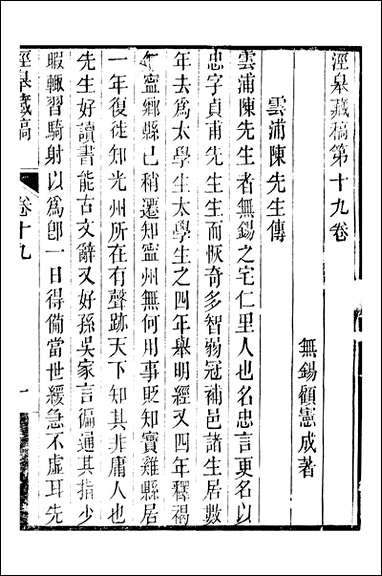 涇皋藏稿第十九卷
無錫顧憲成著
雲浦陳先生傳
雲浦陳先生者無錫之宅仁里人也名忠言更名以
忠字貞甫先生生而恢奇多智弱冠補邑諸生居數
年去爲太學生太學生之四年舉明經又四年釋褐
知寧鄉縣已稍遷知寧州無何用事貶知寶雞縣居
一年復徙知光州所在有聲跡天下知其非庸人也
先生好讀書能古文辭又好孫吳家言徧通其指少
暇輒習騎射以爲卽一日得備當世緩急不虛耳先
涇皋藏稿
卷十九
一